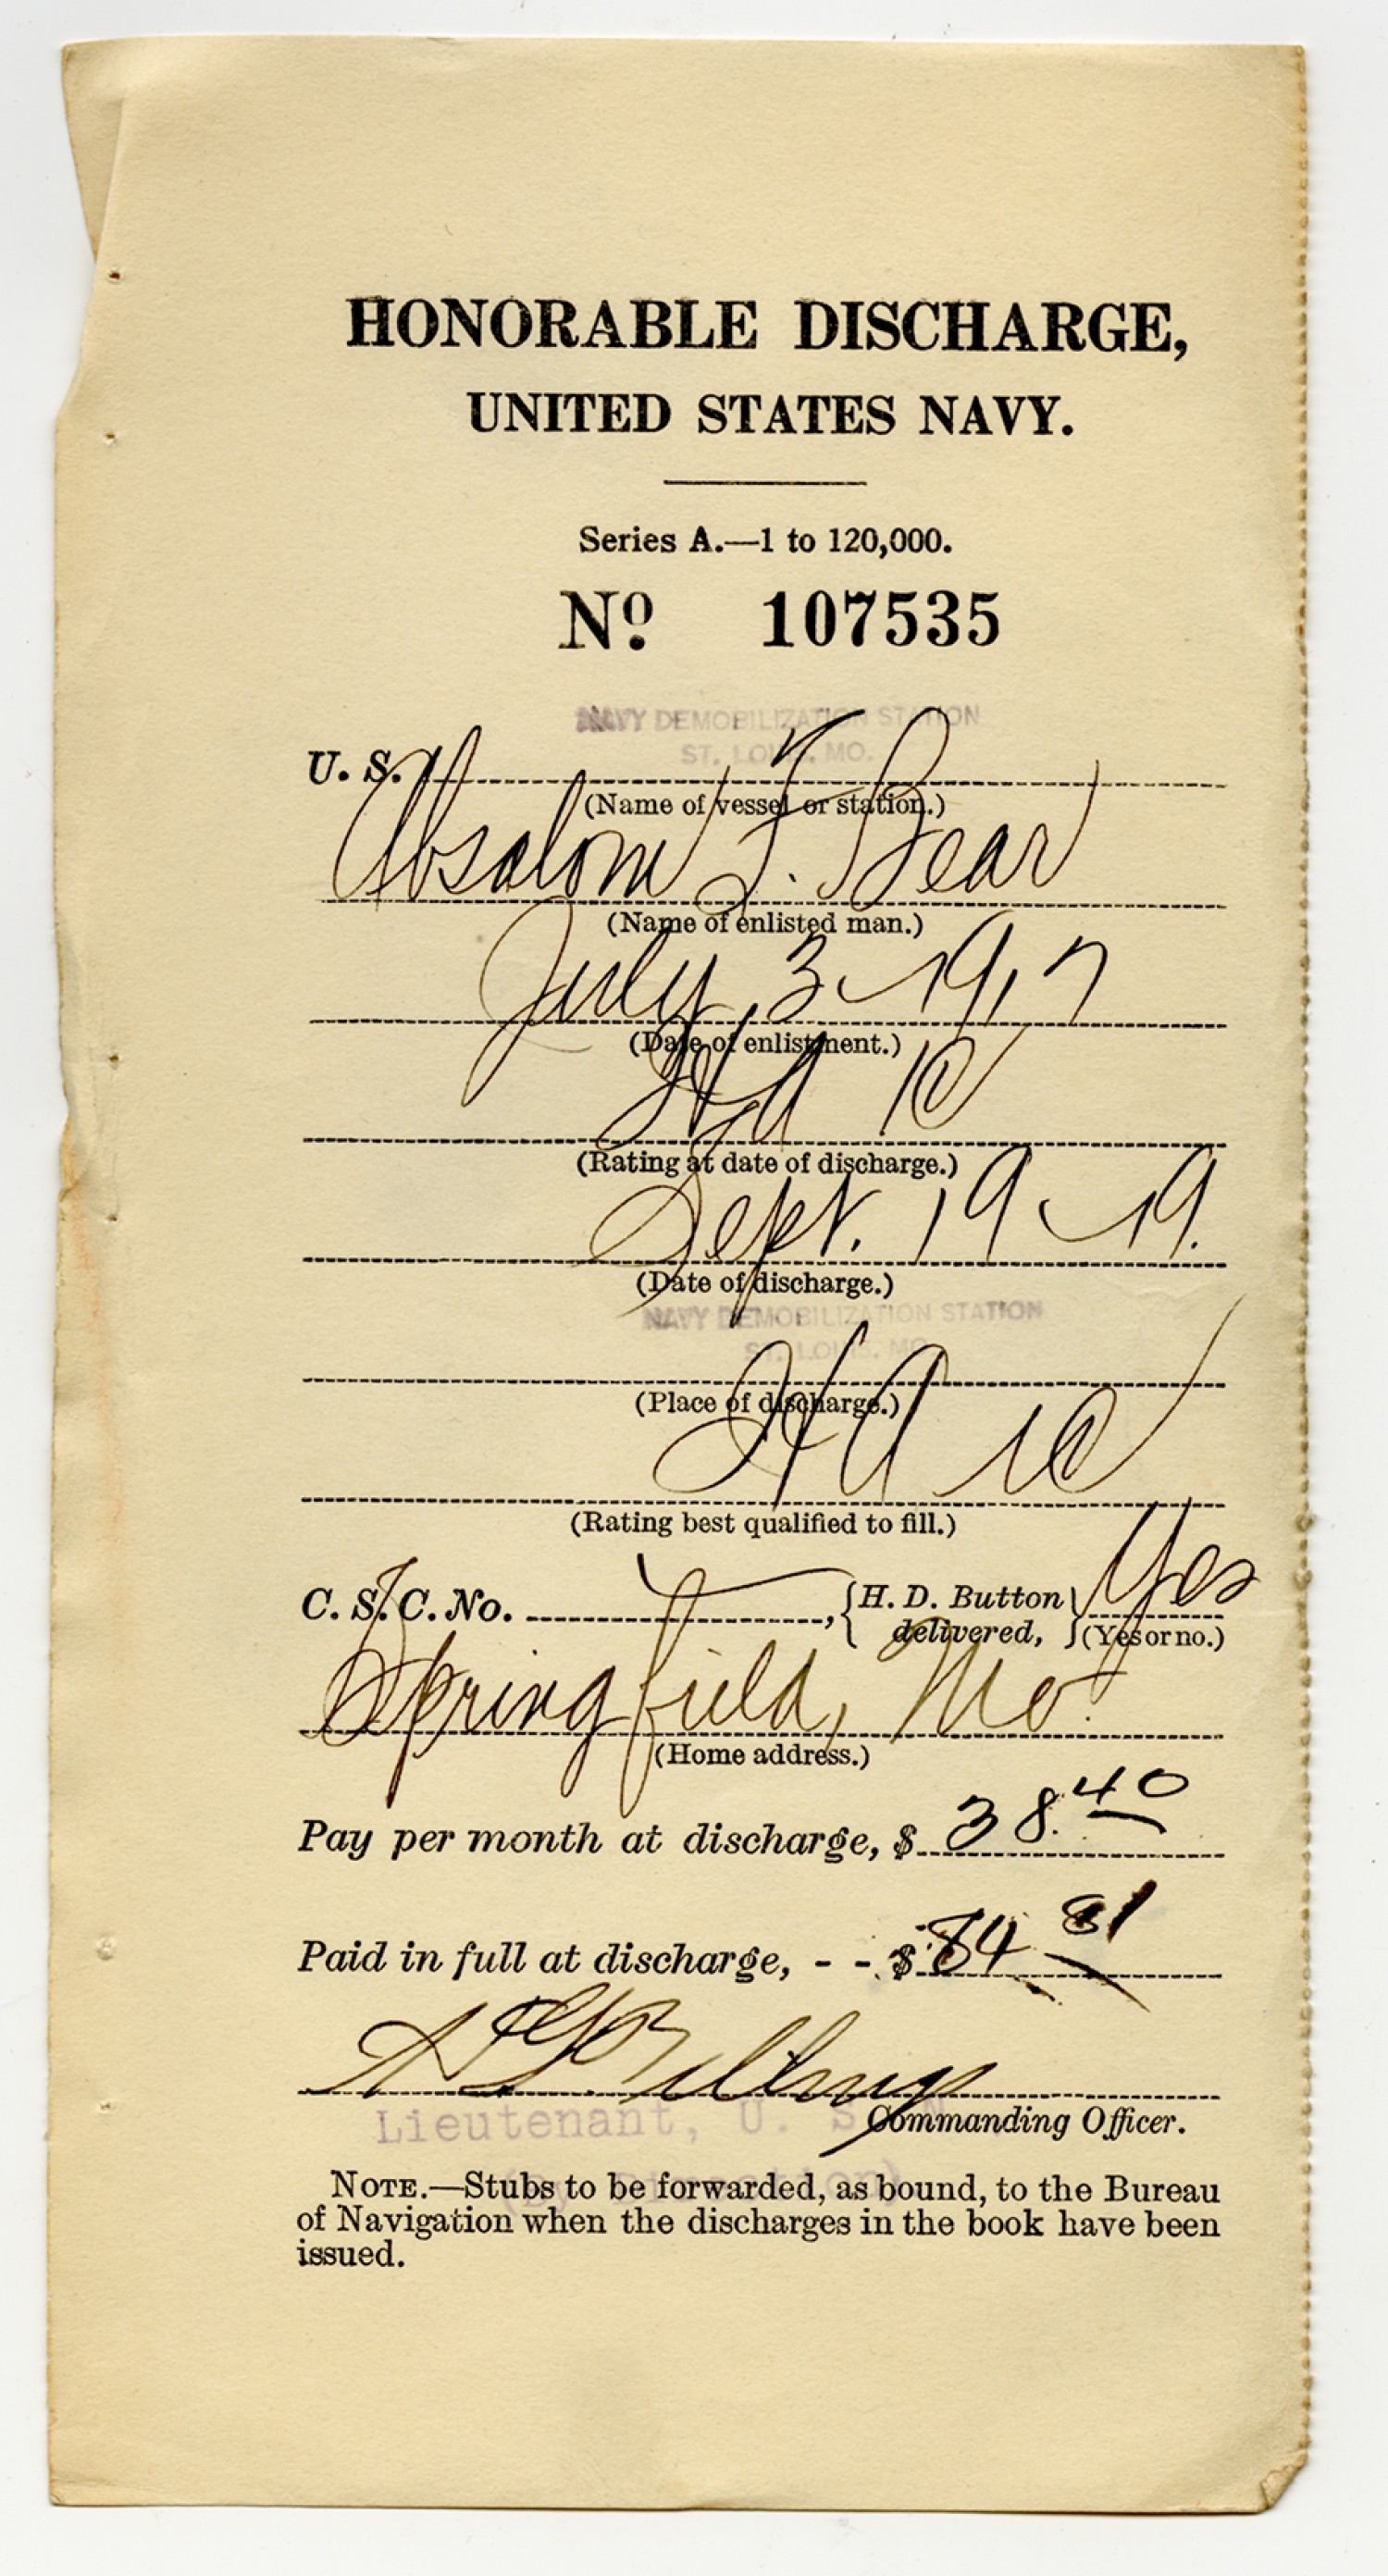 HONORABLE DISCHARGE,
UNITED STATES NAVY.
Series A.—1 to 120,000.
No. 107535
NAVY DEMOBILIZATION STATION
ST. LOUIS, MO.
U. S.
(Name of vessel or station.)
Absalom F. Bear
(Name of enlisted man.)
July 3-1917
(Date of enlistment.)
HA 1C
(Rating at date of discharge.)
Sept. 19-19.
(Date of discharge.)
NAVY DEMOBILIZATION STATION
ST. LOUIS, MO.
(Place of discharge.)
HA 1C
(Rating best qualified to fill.)
C. S. C. No. , {H. D. Button delivered,} Yes
(Yes or no.)
Springfield, Mo.
(Home address.)
Pay per month at discharge, $ 38.40
Paid in full at discharge, - - $ 84 81
Billings
Lieutenant, U. S. N.
Commanding Officer.
(By Direction)
NOTE.—Stubs to be forwarded, as bound, to the Bureau
of Navigation when the discharges in the book have been
issued.